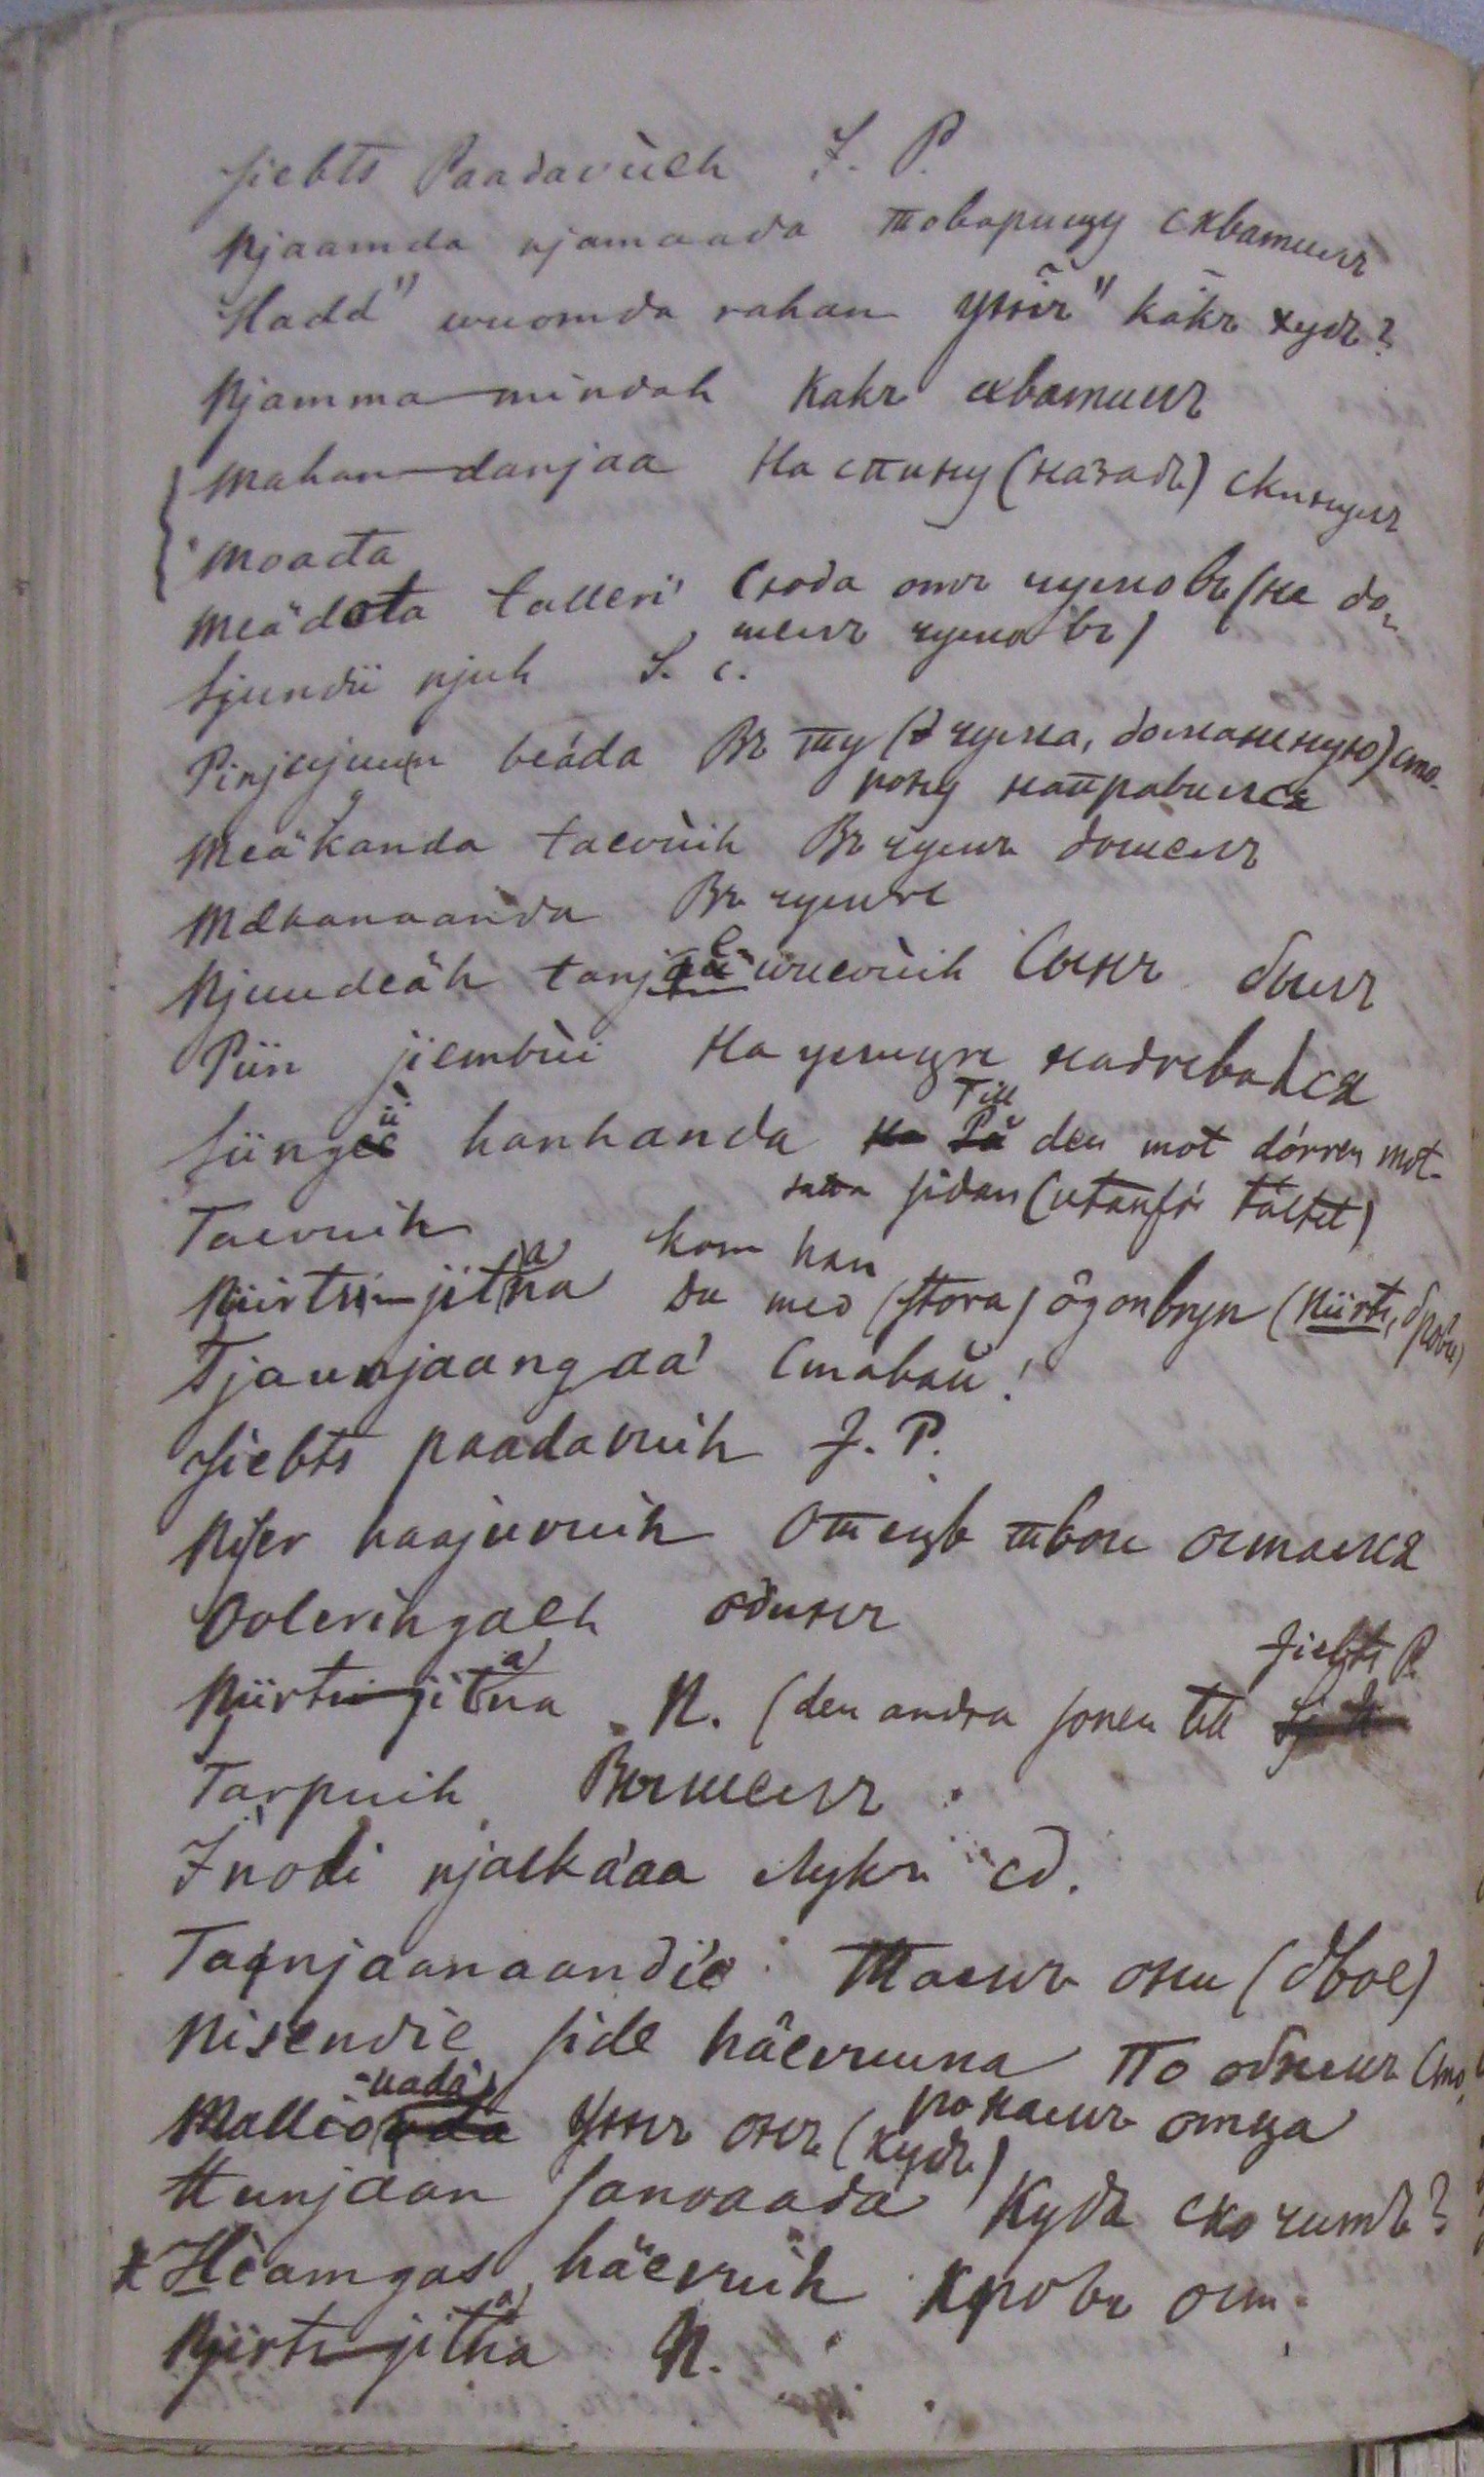 Jiebts Paadavùeh J. P.
Njaamda njamaada товарищу схватилъ
Hadd" wuomda rahan унёлъ" какъ худъ?
Njamma-mindah Какъ схватилъ
Mahan-danjaa На спину (назадъ) скинулъ
Moaata
Meädata talleri' Сюда отъ чумовъ (не до-
шелъ чумовъ)
Sjundii njuh S. c.
beáda Въ ту (чума, домашнюю) сто-
рону направился
Meäkanda taevùih Въ чумъ дошелъ
Mækanaanda Въ чумѣ
Njuudeäh wuevùih Сынъ былъ
Piin jiembùi На улицѣ надѣвался
hanhanda Till den mot dörren mot-
satta sidan (utanför tältet)
Taevuih kom han
Niirtsi-jitna du med (stora) ögonbryn (Niirti, брови)
Tjaunjaangaa' Ставай!
Jiebts paadavuih J. P.
Njer haajuvuih Отецъ твой остался
Ooleringaeh одинъ
Niirtsi-jitna N. (den andra sonen till Jiebts P.
Tarpuih Вышелъ
Jnodi njaekáaa Лукъ сд.
Taenjaanaandie Тамъ они (двое)
Nisendie side häevuuna По обѣимъ сто-
ронамъ отца
Malleo-nada' Унёлъ онъ (худъ)
Hunjaan sanoaada Куда скочитъ?
x Heamgas häevuih Кровь ост.
Njirti-jitna N.